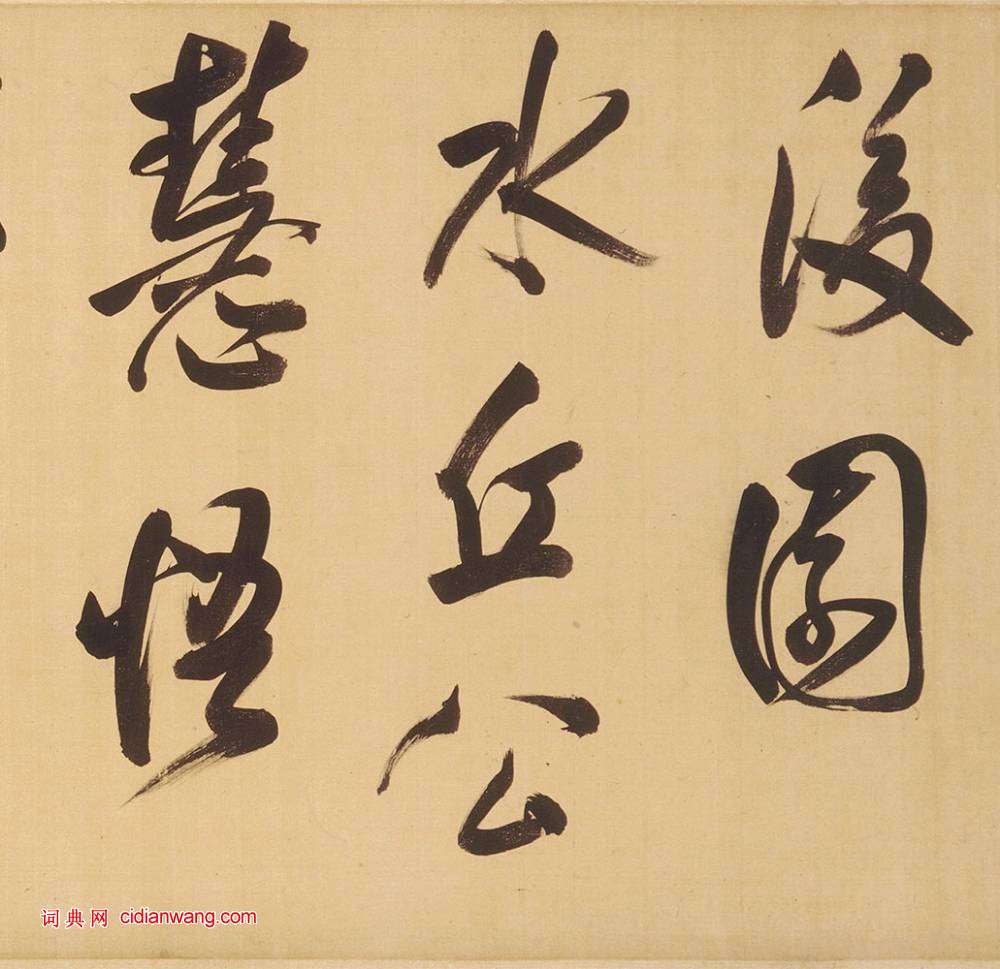 後園
水丘公
慧悟
词典网 cidianwang.com